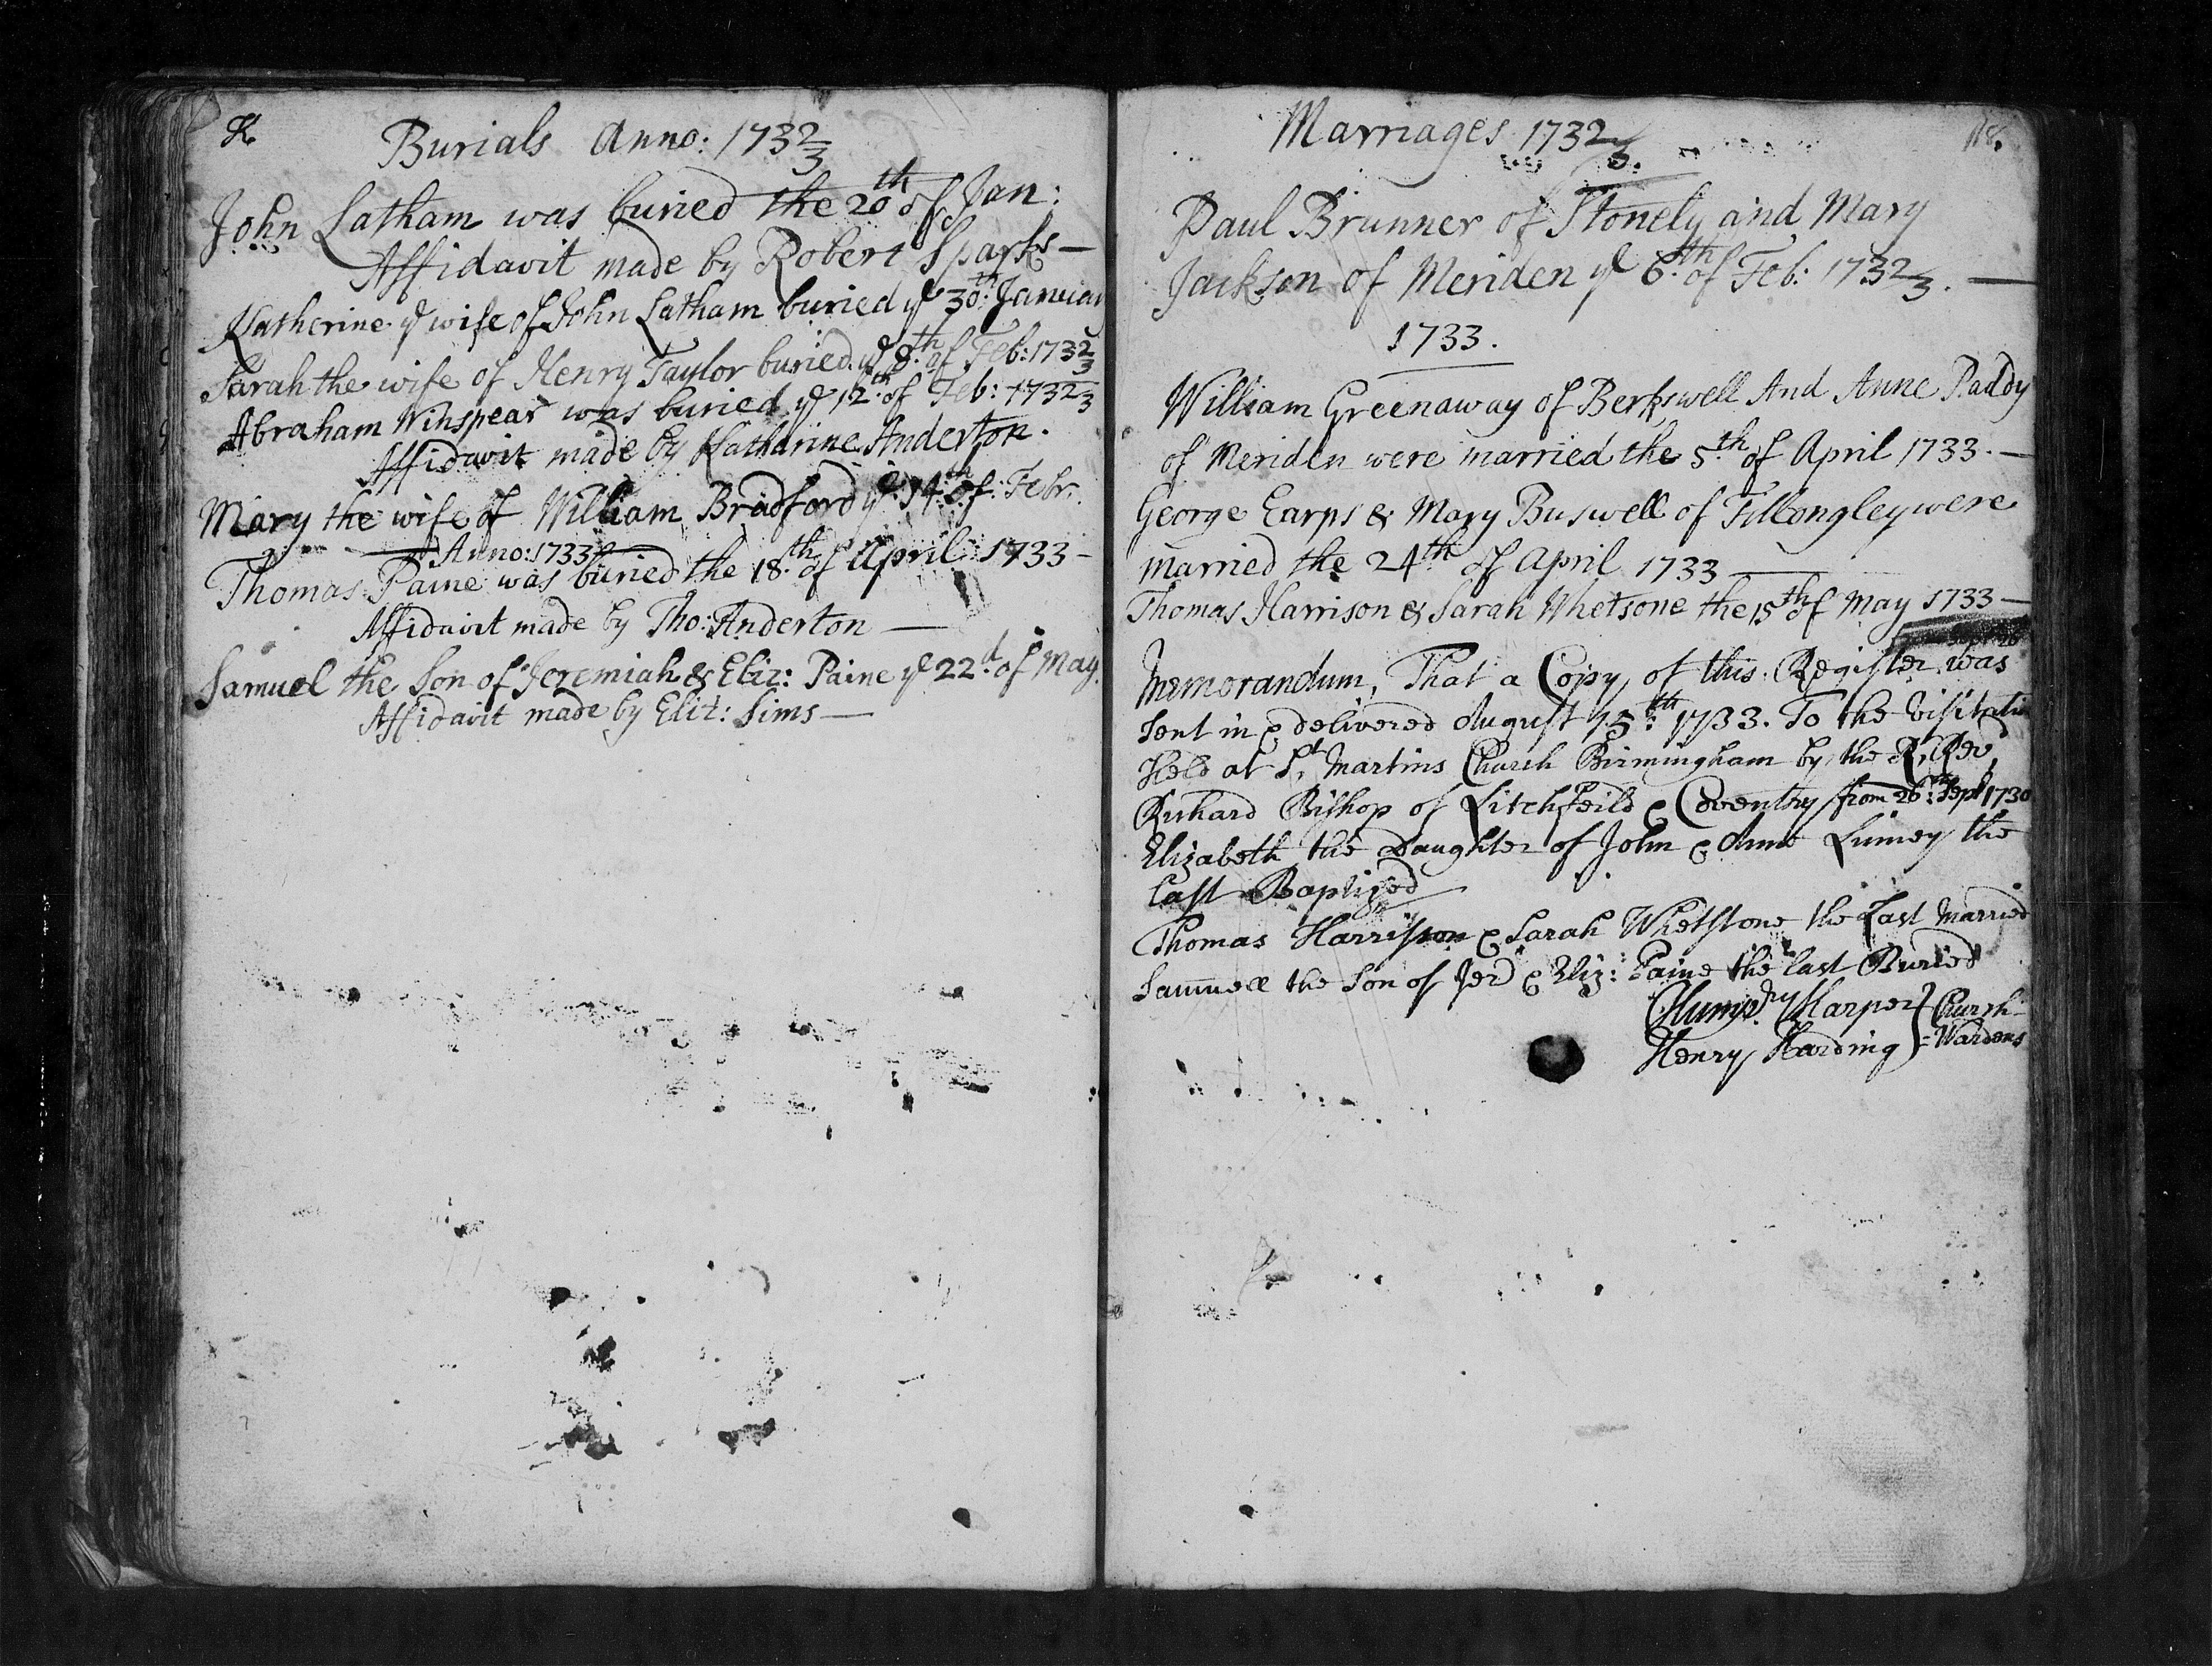 Burials Anno: 1732/3
John Latham was buried the 20th of Jan:
Affidavit made by Robert Sparks —
Katherine ye wife of John Latham buried ye 30th: January
Sarah the wife of Henry Taylor buried ye 8th. of Feb: 1732/3
Abraham Winspear was buried ye 12th. of Feb: 1732/3
Affidavit made by Katharine Anderton.
Mary the wife of William Bradford ye 14th: of: Febr.
Anno: 1733
Thomas Paine was buried the 18.th of April 1733 —
Affidavit made by Tho: Anderton —
Samuel the Son of Jeremiah & Eliz: Paine ye 22.d of May.
Affidavit made by Eliz: Sims —
Marriages 1732/3.
Paul Brunner of Stonely and Mary
Jackson of Meriden ye 6.th of Feb: 1732/3. —
1733.
William Greenaway of Berkswell And Anne Paddy
of Meriden were married the 5.th of April 1733. —
George Earps & Mary Buswell of Fillongley were
married the 24th of April 1733 —
Thomas Harrison & Sarah Whetsone the 15th of May 1733 —
Memorandum, That a Copy of this Register was
sent in & delivered August 15th: 1733. To the Visitatio
Held at St. Martins Church Birmingham by the Rt. Rev
Richard Bishop of Litchfeild & Coventry from 26th: Sept 1730
Elizabeth the Daughter of John & Anne the
last Baptized
Thomas Harrisson & Sarah Whetstone the Last Married
Samuell the Son of Jer & Eliz: Paine the last Buried
Humpry Harper } Church
Henry Harding } = Wardens